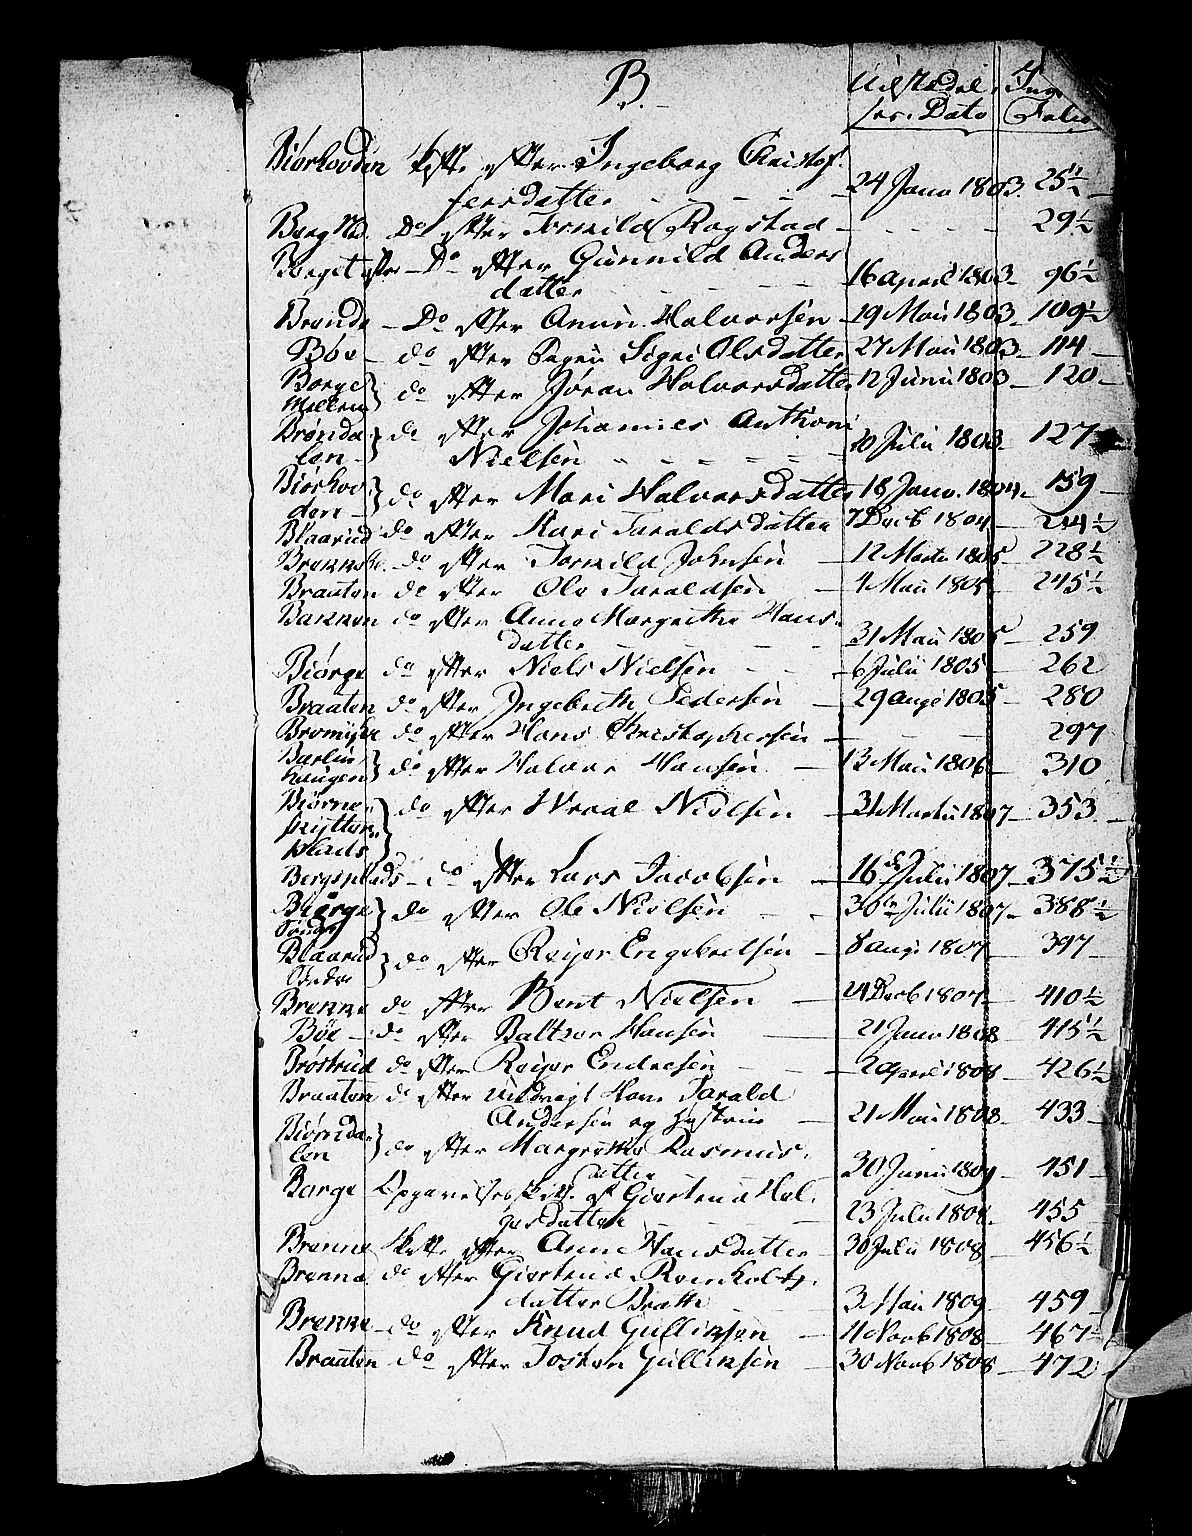 B.
Dato Folio
Biørhovden Skifte efter Ingeborg Christof-
fersdatter - - - 24 Janv 1803. 25½
Berg Ned. Do efter Tormild Rogstad - - - 29½
Berget - Do efter Gunnild Anders
datter - - - 16 april 1803 - 96½
Brende - Do efter Halvorsen - 19 Maii 1803 - 109½
Böe - do efter Sigri Olsdatter 27 Maii 1803 - 114
Borge Mellem } do efter Jøran Halvorsdatter 12 Junii 1803 - 120
Brønda-
len - } do efter Johannes Anthoni
Nielsen - - - 20 Julii 1803 - 127
Biørhov-
den - } do efter Mari Halvorsdatter 18 Janv. 1804 - 159
Blaarud do efter Kari Taraldsdatter 7 Decb 1804 - 214½
do efter Tormild Johnsen 12 Martii 1805 - 228½
Braaten do efter Ole Taraldsen - 4 Maii 1805 - 245½
Bakken do efter Anne Margrethe Hans-
datter - - - 31 Maii 1805 - 259
Biørge do efter Niels Nielsen - 6 Julii 1805 - 262
Braaten do efter Ingebreth Pedersen - 29 aug 1805 - 280
do efter Hans Christophersen - - 297
Berlin-
haugen } do efter Halvor Hansen - 13 Maii 1806 - 310
Biørne-
plads } do efter Wraal Nielsen - 31 Martii 1807 - 353
Bergsplads - do efter Lars Jacobsen - 16de Julii 1807 - 375½
Biørge } do efter Ole Nielsen - - 30te Julii 1807 - 388½
Blaarud
Nedre } do efter Reier Engebretsen - 8 aug 1807 - 397
Brenne do efter Bent Nielsen - 24 Decb 1807 - 410½
Böe - do efter Baltzer Hansen - 21 Janv 1808 - 415½
Brøstrud do efter Reier Endresen - - 2 april 1808 - 426½
Braaten do efter Hans Tarald
Andersen og Hustrue - 21 Maii 1808 - 433
Biørnda-
len } do efter Margrethe Rasmus-
datter 30 Junii 1809 - 451
Borge Giertrud Hel-
gesdatter - - - 23 Julii 1808 - 455
Brenne Skifte efter Anne Hansdatter - 30 Julii 1808 - 456½
Brenne do efter Giertrud Reinholts-
datter Brath - - 3 Maii 1809 - 459
Brenne - do efter Knud Gullixsen - 4 Novb 1808 - 467½
Braaten do efter Tosten Gullixsen - 30 Novb 1808 - 472